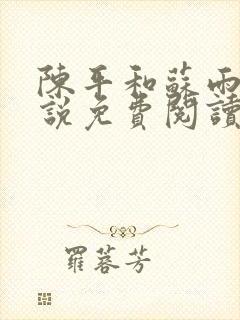 陳平和蘇雨
說免費閱讀
羅蓉芳